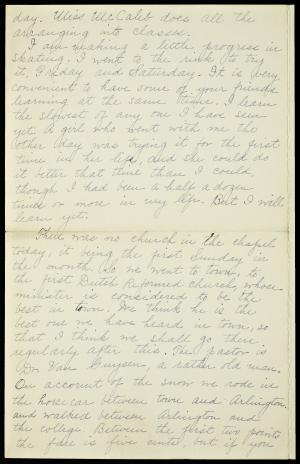 day. Miss McCaleb does all the
arranging into classes.
I am making a little progress in
skating. I went to the rink to try
it, Friday and Saturday. It is very
convenient to have some of your friends
learning at the same time. I learn
the slowest of any one I have seen
yet. A girl who went with me the
other day was trying it for the first
time in her life, and she could do
it better that time than I could,
though I had been a half a dozen
times or more in my life. But I will
learn yet.
There was no church in the chapel
today, it being the first Sunday in
the month. So we went to town, to
the first Dutch Reformed church, whose
minister is considered to be the
best in town. We think he is the
best one we have heard in town, so
that I think we shall go there
regularly after this. The pastor is
Dr. Van Guysen, a rather old man.
On account of the snow we rode in
the horse car between town and Arlington,
and walked between Arlington and
the college. Between the first two points
the fare is five cents, but if you